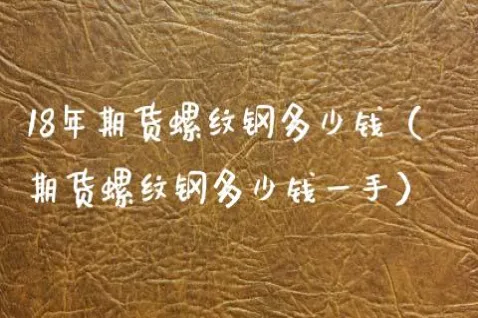 18年期货螺纹钢多少钱（
期货螺纹钢多少钱一手）